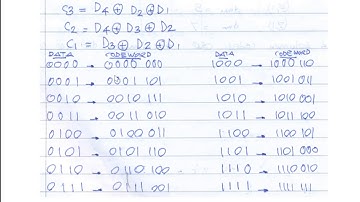 C3 = D4 ⊕ D2 ⊕ D1
C2 = D4 ⊕ D3 ⊕ D2
C1 = D3 ⊕ D2 ⊕ D1
DATA CODEWORD DATA CODEWORD
0000 → 0000 000 1000 → 1000 110
0001 → 0001 101 1001 → 1001 011
0010 → 0010 111 1010 → 1010 001
0011 → 0011 010 1011 → 1011 100
0100 → 0100 011 1100 → 1100 101
0101 → 0101 110 1101 → 1101 000
0110 → 0110 100 1110 → 1110 010
0111 → 0111 001 1111 → 1111 111